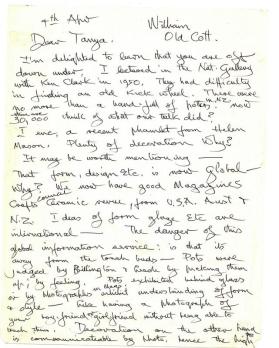 4th Apr William
Old Cott.
Dear Tanya.
I'm delighted to learn that you are
down under, I lectured in the Nat. Gallery
with Ken Clark in 1950. They had difficulty
in finding an old kick wheel. There were
no more than a hand-full of potters, in N.Z. now
30,000 think of what our talk did?
I enc, a recent from Helen
Mason. Plenty of decoration Why?
It may be worth mentioning —
That form, design etc. is now global —
Why? We now have good Magazines
Crafts Ceramic review, from U.S.A. Aust &
N.Z. Ideas of form glaze etc are
international — The danger of this
global information service: is that its
away from the touch — Pots were
judged by Billington & Leach by picking them
up; by feeling. Pots exhibited behind glass
or by Photographs understanding of form
& — like having a Photograph of
your boy-friend/girlfriend without being able to
touch them. Decoration on the other hand
is communicable by Photo, hence the high